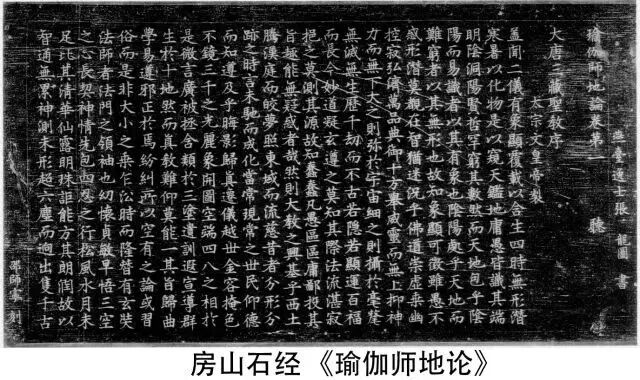 燕臺逸士張龍圖書
瑜伽師地論卷第一 聽
大唐三藏聖教序
太宗文皇帝製
盖聞二儀有象顯覆載以含生四時無形潛
寒暑以化物是以窺天鑑地庸愚皆識其端
明陰洞陽賢哲罕窮其數然而天地包乎陰
陽而易識者以其有象也陰陽處乎天地而
難窮者以其無形也故知象顯可徵雖愚不
惑形潛莫覩在智猶迷況乎佛道崇虛乘幽
控寂弘濟萬品典御十方舉威靈而無上抑神
力而無下大之則弥於宇宙細之則攝於毫釐
無滅無生歷千劫而不古若隱若顯運百福
而長今妙道凝玄遵之莫知其際法流湛寂
挹之莫測其源故知蠢蠢凡愚區區庸鄙投其
旨趣能無疑惑者哉然則大教之興基乎西土
騰漢庭而皎夢照東域而流慈昔者分形分
跡之時言未馳而成化當常現常之世民仰德
而知遵及乎晦影歸真遷儀越世金容掩色
不鏡三千之光麗象開圖空端四八之相於
是微言廣被拯含類於三塗遺訓遐宣導群
生於十地然而真教難仰莫能一其旨歸曲
學易遵邪正於焉紛糾所以空有之論或習
俗而是非大小之乘乍沿時而隆替有玄奘
法師者法門之領袖也幼懷貞敏早悟三空
之心長契神情先包四忍之行松風水月未
足比其清華仙露明珠詎能方其朗潤故以
智通無累神測未形超六塵而迥出隻千古
邵師奉刻
房山石经《瑜伽师地论》